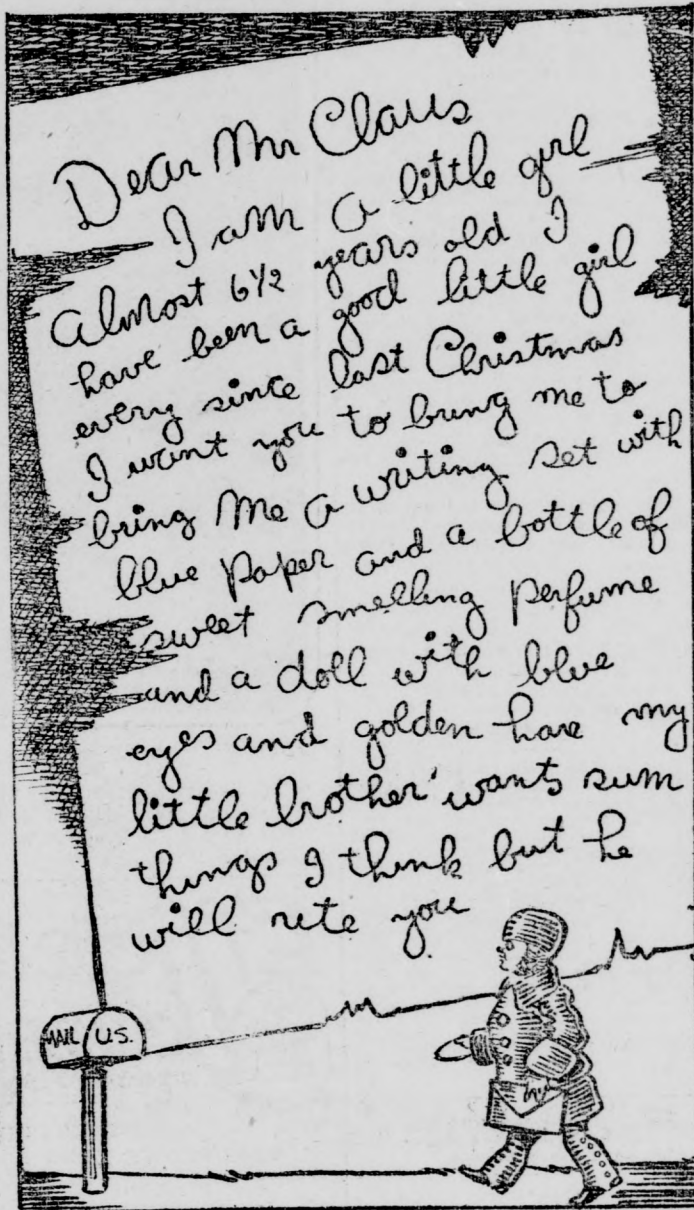 Dear Mr Claus
I am a little girl
Almost 6 1/2 years old I
have been a good little girl
every since last Christmas
I want you to brung me to
bring me a writing set with
blue paper and a bottle of
sweet smelling perfume
and a doll with blue
eyes and golden hare my
little brother wants sum
things I think but he
will rite you
MAIL U.S.